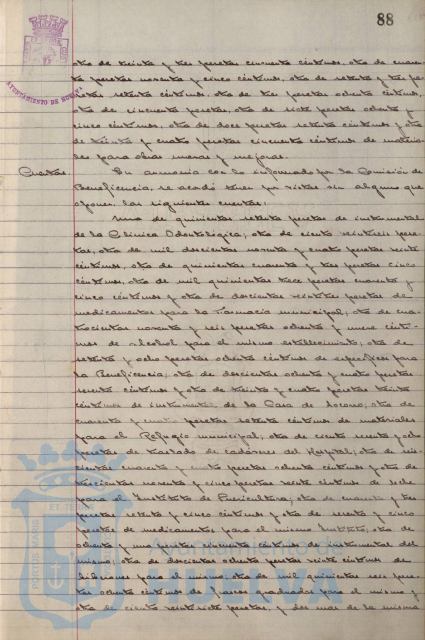 88
AYUNTAMIENTO DE HUELVA
otra de treinta y tres pesetas cincuenta céntimos, otra de cuaren-
ta pesetas noventa y cinco céntimos, otra de setenta y tres pe-
setas setenta céntimos, otra de tres pesetas ochenta céntimos,
otra de cincuenta pesetas, otra de siete pesetas ochenta y
cinco céntimos, otra de doce pesetas setenta céntimos y otra
de treinta y cuatro pesetas cincuenta céntimos de materia-
les para obras nuevas y mejoras.
Cuentas. En armonía con lo informado por la Comisión de
Beneficencia, se acordó tener por vistas sin alguno que
oponer, las siguientes cuentas:
Una de quinientas setenta pesetas de instrumental
de la Clínica Odontológica; otra de ciento veintiseis pese-
tas, otra de mil doscientas noventa y cuatro pesetas veinte
céntimos, otra de quinientas cuarenta y tres pesetas cinco
céntimos, otra de mil quinientas trece pesetas cuarenta y
cinco céntimos y otra de doscientas pesetas de
medicamentos para la Farmacia municipal; otra de cua-
trocientas noventa y seis pesetas ochenta y nueve cénti-
mos de alcohol para el mismo establecimiento; otra de
setenta y ocho pesetas ochenta céntimos de específicos para
la Beneficencia; otra de doscientas ochenta y cuatro pesetas
céntimos y otra de treinta y cuatro pesetas treinta
céntimos de instrumental de la Casa de Socorro; otra de
cuarenta y pesetas setenta céntimos de materiales
para el Refugio municipal; otra de ciento y ocho
pesetas de traslado de cadáveres del Hospital; otra de seis-
cientas cuarenta y pesetas ochenta céntimos y otra de
trescientas noventa y cinco pesetas veinte céntimos de leche
para el Instituto de Puericultura; otra de cuarenta y tres
pesetas setenta y cinco céntimos y otra de y cinco
pesetas de medicamentos para el mismo Instituto; otra de
ochenta y una pesetas cincuenta céntimos de instrumental del
mismo; otra de doscientas ochenta pesetas veinte céntimos de
biberones para el mismo; otra de mil quinientas seis pese-
tas ochenta céntimos de para el mismo y
otra de ciento veintisiete pesetas, y dos más de la misma
PORTUS MARIS
ET TERRAE
Ayuntamiento de
HUELVA